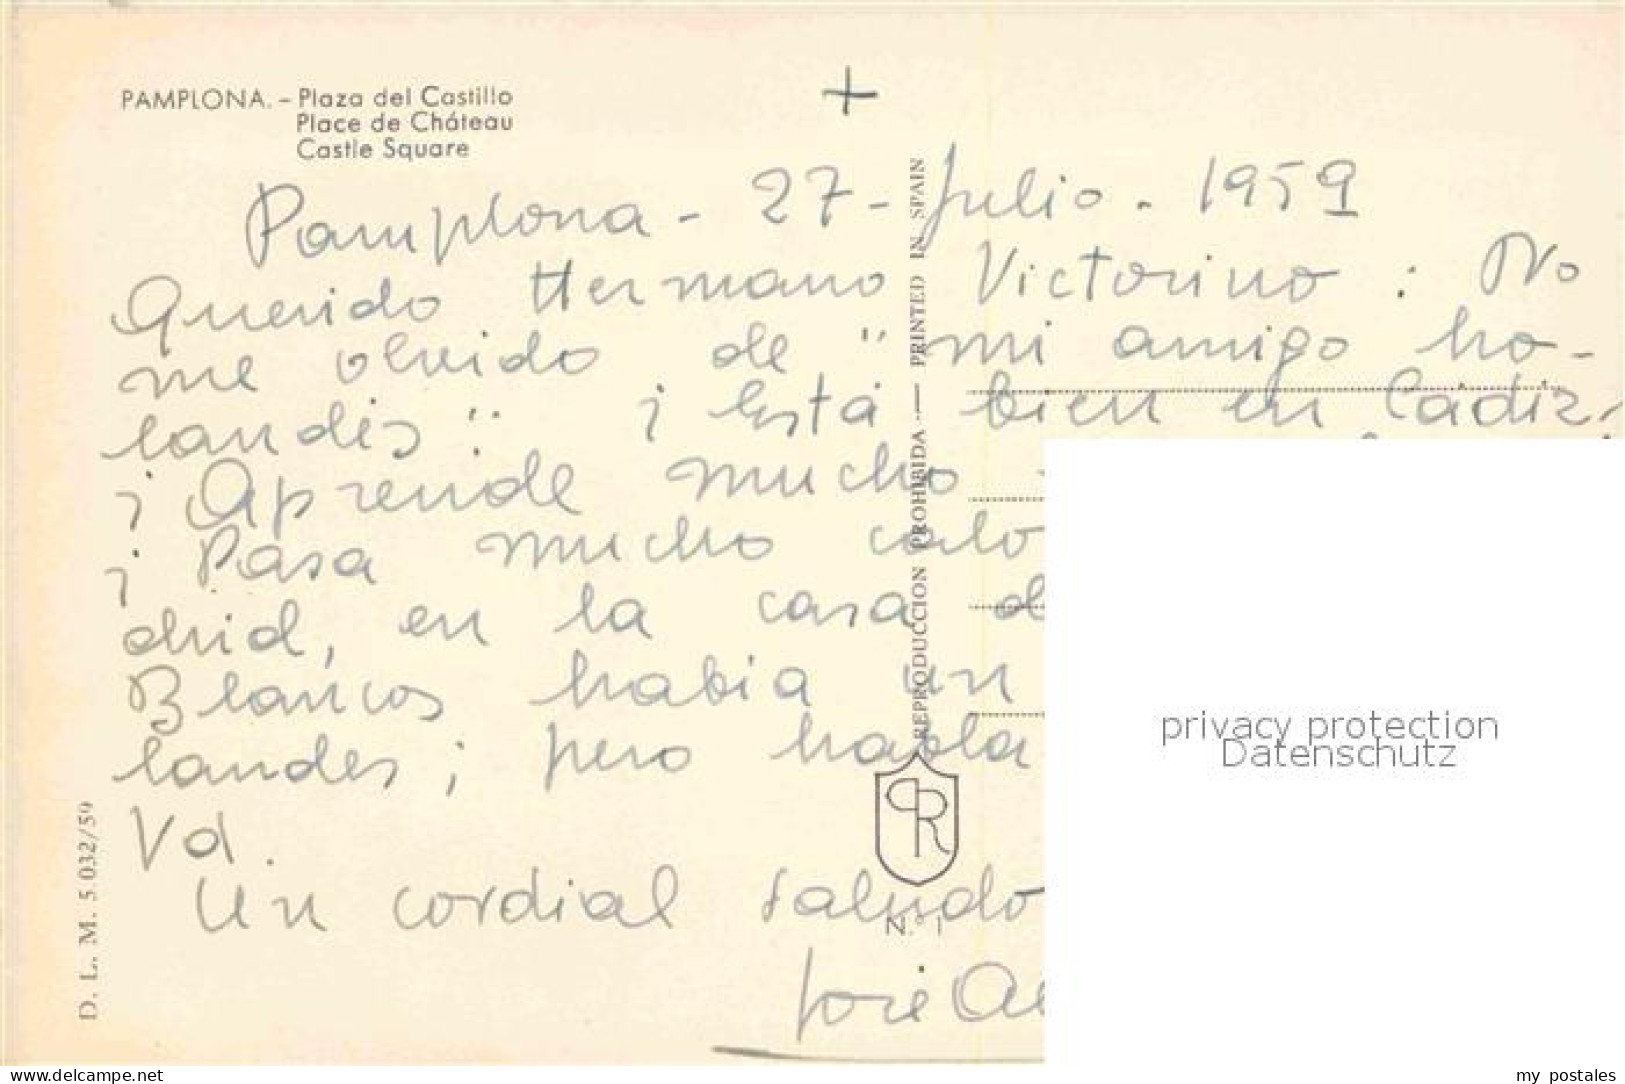 PAMPLONA. - Plaza del Castillo
Place de Cháteau
Castle Square
+
Pamplona - 27 - Julio - 1959
Querido Hermano Victorino : No
me olvido de "mi amigo ho-
landés" ¿Está bien en Cádiz,
¿Aprende mucho
¿Pasa mucho calo
drid, en la casa d
Blancos había un
landes; pero habla
Vd.
Un cordial saludo
José
REPRODUCCION PROHIBIDA — PRINTED IN SPAIN
PR
N.º 1
D. L. M. 5 032/59
privacy protection
Datenschutz
www.delcampe.net
my_postales